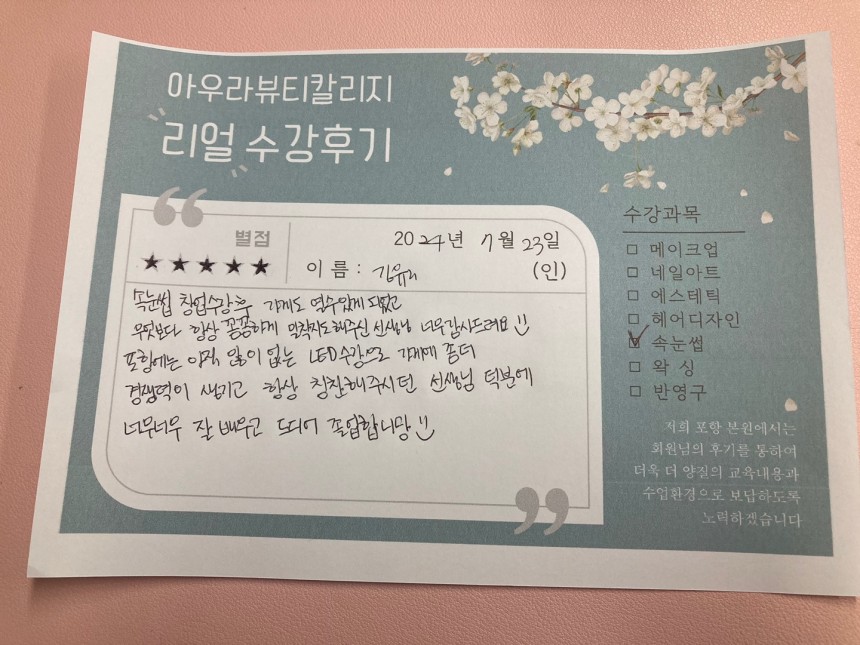 아우라뷰티칼리지
리얼 수강후기
별점
★★★★★
2024년 7월 23일
이름 : 김유리 (인)
속눈썹 창업수강후 가게도 열수있게 되었고
무엇보다 항상 꼼꼼하게 밀착지도해주신 선생님 너무감사드려요
포항에는 아직 많이 없는 LED수강으로 가게에 좀더
경쟁력이 생기고 항상 칭찬해주시던 선생님 턱분에
너무너무 잘 배우고 드디어 졸업합니당
수강과목
□ 메이크업
□ 네일아트
□ 에스테틱
□ 헤어디자인
☑ 속눈썹
□ 왁싱
□ 반영구
저희 포항 본원에서는
회원님의 후기를 통하여
더욱 더 양질의 교육내용과
수업환경으로 보답하도록
노력하겠습니다